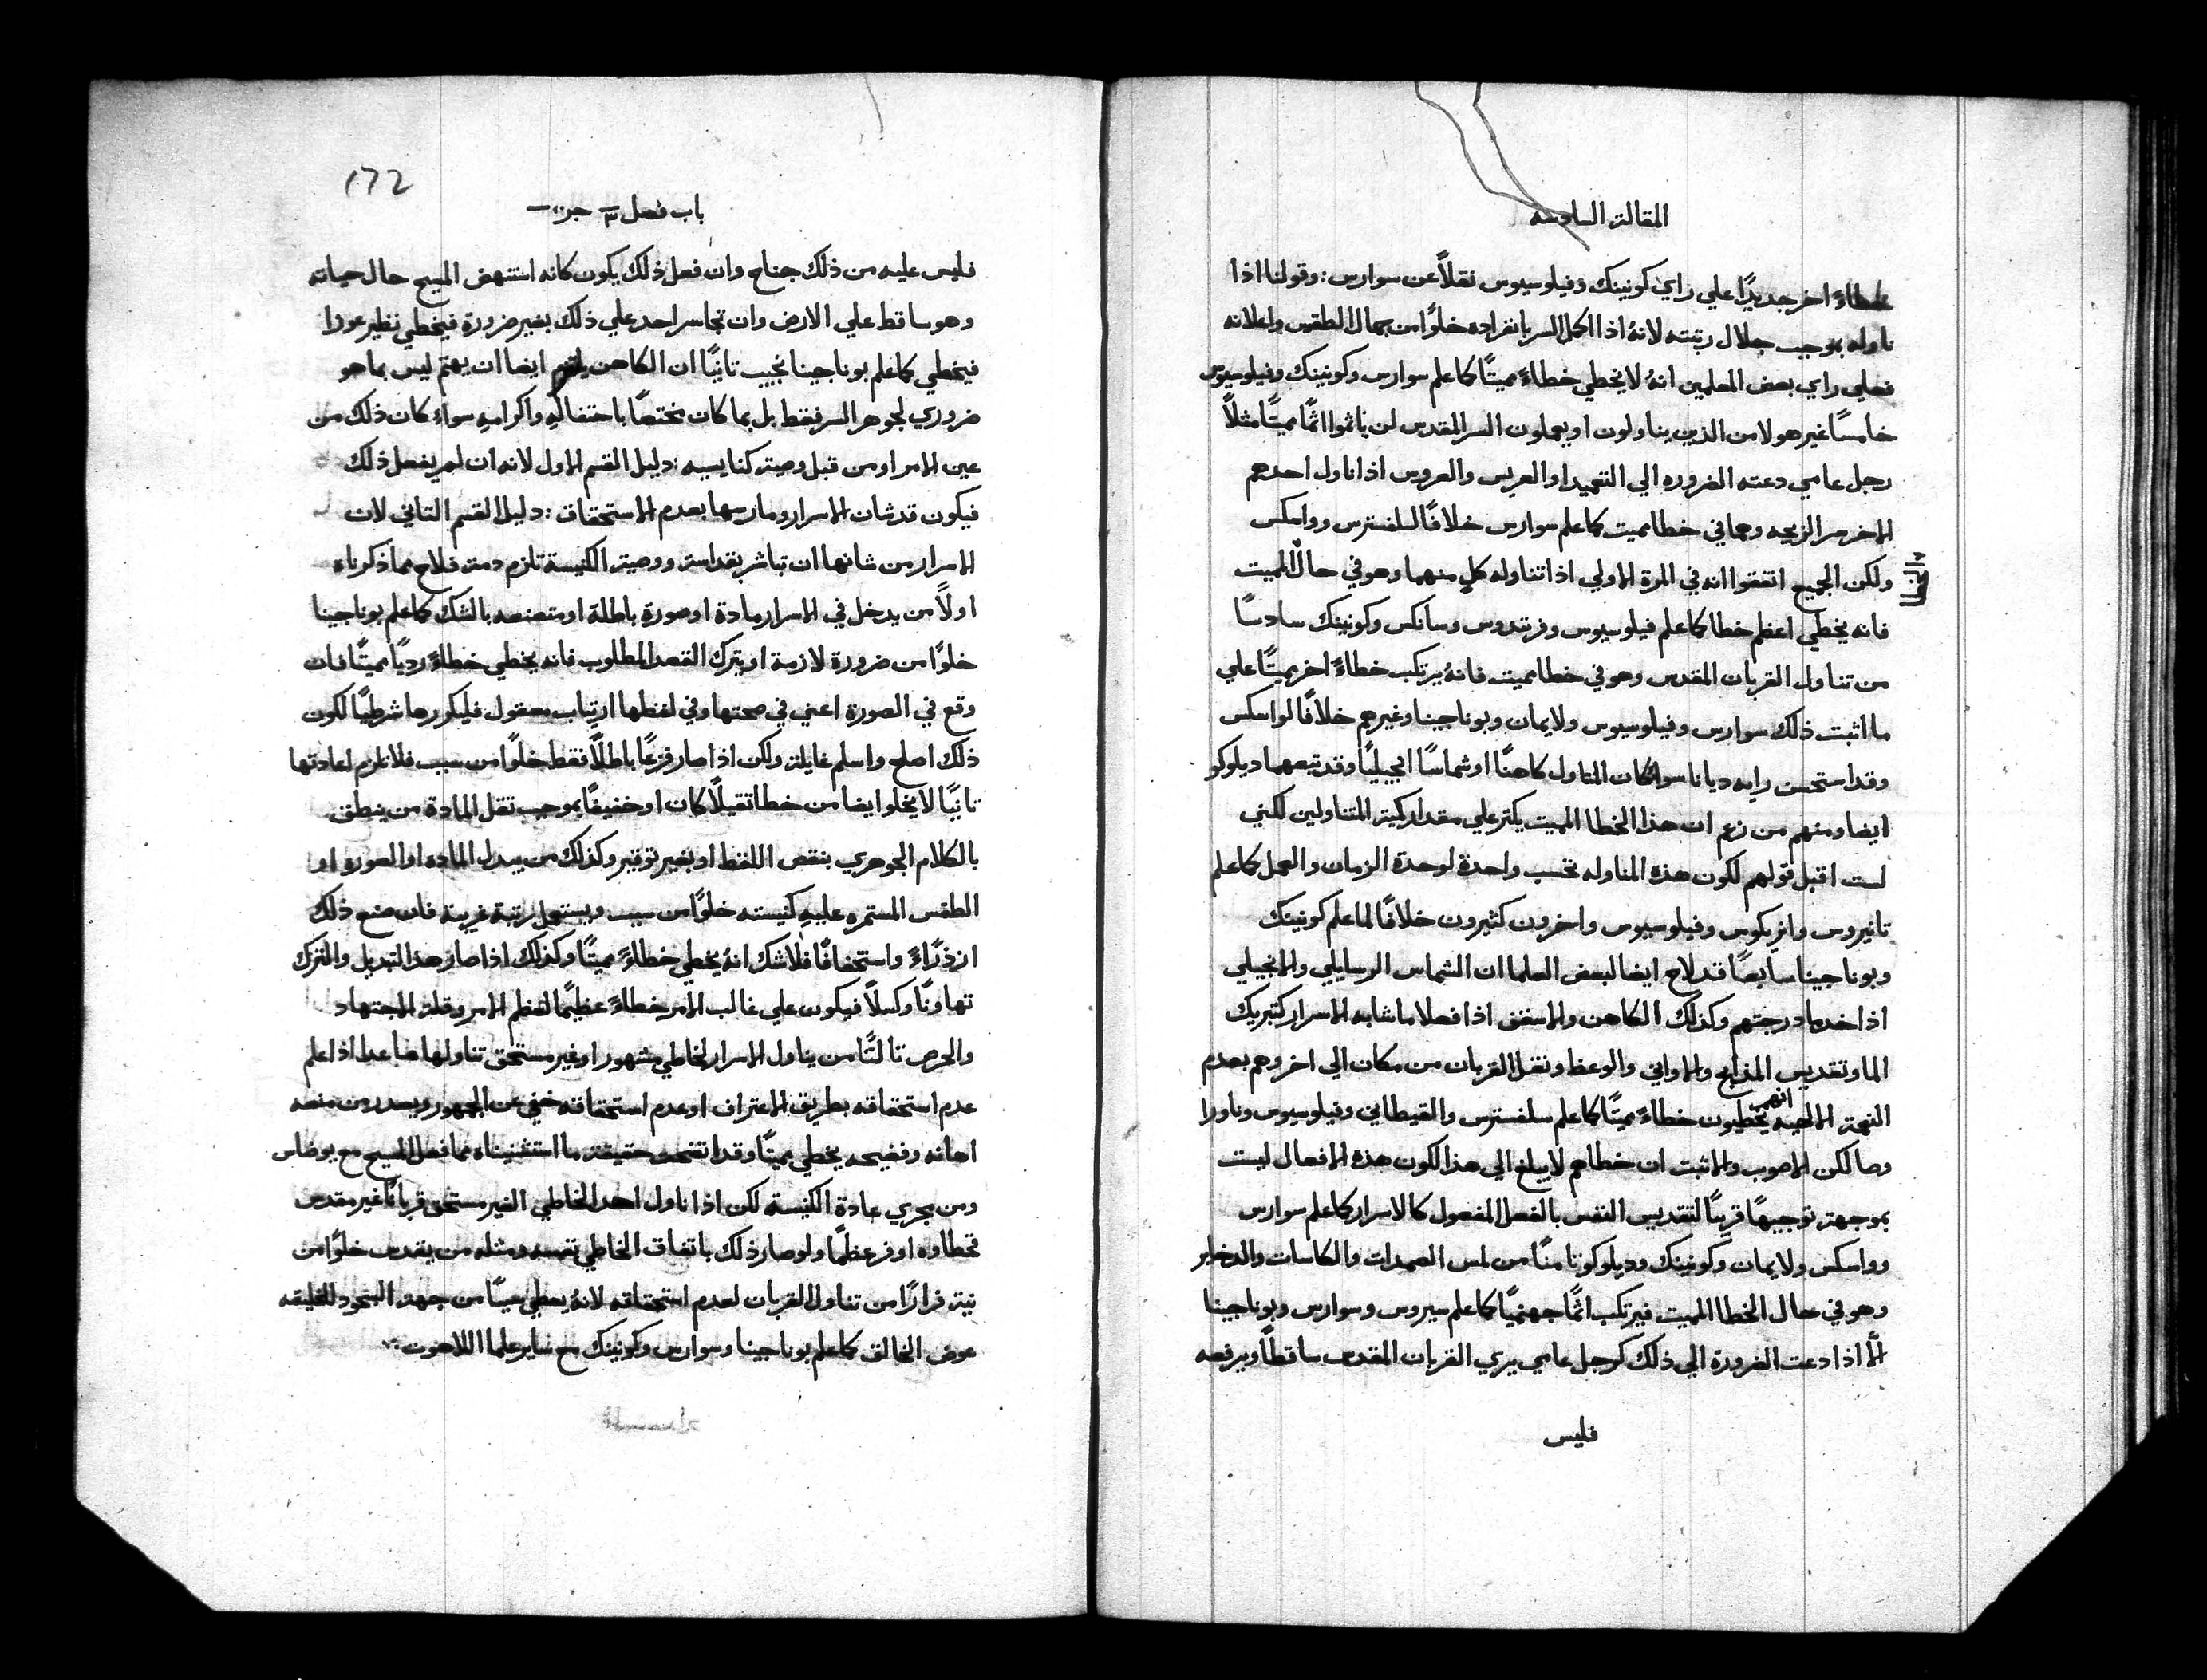 المقالة السادسه
خطاءً اخر جديدًا علي راي كونينك وفيلوسيوس نقلاً عن سوارس : وقولنا اذا
ناوله بموجب جلال رتبته لانهُ اذا اكمل السر بانفراده خلوًا من جمال الطقس واعلانه
فعلي راي بعض المعلمين انهُ لا يخطي خطاءً مميتًا كما علم سوارس وكونينك وفيلوسيوس
خامسًا غير هولا من الذين يناولون او يعملون السر المقدس لن ياثموا اثمًا مميتًا مثلاً
رجل عامي دعته الضروره الي التعميد او العريس والعروس اذا ناول احدهم
الاخر سر الزيجه وهما في خطا مميت كما علم سوارس خلافًا لسلفسترس وواسكس
ولكن الجميع اتفقوا انه في المرة الاولي اذا تناوله كلٍ منهما وهو في حال المميت
الخطا
فانه يخطي اعظم خطا كما علم فيلوسيوس وفرتندوس وسانكس وكونينك سادسًا
من تناول القربان المقدس وهو في خطا مميت فانهُ يرتكب خطاءً اخر مميتًا علي
ما اثبت ذلك سوارس وفيلوسيوس ولايمان وبوناجينا وغيرهم خلافًا لواسكس
وقد استحسن رايه ديانا سوا كان المتاول كاهنًا او شماسًا انجيليًا وقد تبعهما ديلوكو
ايضا ومنهم من زعم ان هذا الخطا المميت يكثر علي مقدار كمية المتناولين لكني
لست اقبل قولهم لكون هذه المناوله تحسب واحدة لوحدة الزمان والعمل كما علم
تانيروس وانريكوس وفيلوسيوس واخرون كثيرون خلافًا لما علم كونينك
وبوناجينا سابعًا قد لاح ايضا لبعض العلما ان الشماس الرسايلي والانجيلي
اذا خدما درجتهم وكذلك الكاهن والاسقف اذا فعلا ما شابه الاسرار كتبريك
الما وتقديس المذابح والاواني والوعظ ونقل القربان من مكان الي اخر وهم بعدم
النعمة الالهيه انهم يخطيون خطاءً مميتًا كما علم سلفسترس والقيطاني وفيلوسيوس وناورا
وصا لكن الاصوب والاثبت ان خطاهم لا يبلغ الي هذا لكون هذه الافعال ليست
بموجهة توجيهًا قريبًا لتقديس النفس بالفعل المفعول كالاسرار كما علم سوارس
وواسكس ولايمان وكونينك وديلوكو ثامنًا من لمس الصمدات والكاسات والدخاير
وهو في حال الخطا المميت فيرتكب اثمًا جهنميًا كما علم سيروس وسوارس وبوناجينا
الاَّ اذا دعت الضرورة الي ذلك كرجل عامي يري القربان المقدس ساقطًا ويرفعه
فليس
172
باب فصل ٣ جز
فليس عليه من ذلك جناح وان فعل ذلك يكون كانه استنهض المسيح حال حياته
وهو ساقط علي الارض وان تجاسر احد علي ذلك بغير ضرورة فيخطي نظير عوزا
فيخطي كما علم بوناجينا نجيب ثانيًا ان الكاهن يلتزم ايضا ان يهتم ليس بما هو
ضروري لجوهر السر فقط بل بما كان مختصًا باحتفاله واكرامهِ سواء كان ذلك من
عين الامر او من قبل وصية كنايسيه : دليل القسم الاول لانه ان لم يفعل ذلك
فيكون قد شان الاسرار ومارسها بعدم الاستحقاق : دليل القسم الثاني لان
الاسرار من شانها ان تباشر بقداسة ووصية الكنيسة تلزم دمة فلاح مما ذكرناه
اولاً من يدخل في الاسرار مادة او صورة باطلة او متصنعه بالشك كما علم بوناجينا
خلوًا من ضرورة لازمة او يترك القصد المطلوب فانه يخطي خطاءً رديًا مميتًا فان
وقع في الصورة اعني في صحتها وفي لفظها ارتياب معقول فليكررها شرطيًا لكون
ذلك اصلح واسلم غايلة ولكن اذا صار فزعًا باطلاً فقط خلوًا من سبب فلا تلزم اعادتها
ثانيًا لا يخلو ايضا من خطا ثقيلاً كان او خفيفًا بموجب ثقل المادة من ينطق
بالكلام الجوهري بنقص اللفظ او بغير توقير وكذلك من يبدل الماده او الصوره او
الطقس المستمره عليهِ كنيسته خلوًا من سبب ويستعمل رتبة غريبة فان صنع ذلك
ازدرًاءً واستخفافًا فلا شك انهُ يخطي خطاءً مميتًا وكذلك اذا صار هذا التبديل والترك
تهاونًا وكسلاً فيكون علي غالب الامر خطاءً عظيمًا لعظم الامر وقلة الاجتهاد
والحرص ثالثًا من يناول الاسرار لخاطي مشهور او غير مستحق تناولها ما عدا اذا علم
عدم استحقاقه بطريق الاعتراف او عدم استحقاقه خفي عن الجمهور ويصدر من منعه
اهانه وفضيحه يخطي مميتًا وقد اتضحت حقيقة ما استثنيناه مما فعل المسيح مع يوضاس
ومن مجري عادة الكنيسة لكن اذا ناول احد الخاطي الغير مستحق قربانًا غير مقدس
فخطاوه اوفر عظمًا ولو صار ذلك باتفاق الخاطي نفسه ومثله من يقدس خلوًا من
نية فرارًا من تناول القربان لعدم استحقاقه لانهُ يعطي سببًا من جهة السجود للخليقه
عوض الخالق كما علم بوناجينا وسوارس وكونينك مع ساير علما اللاهوت